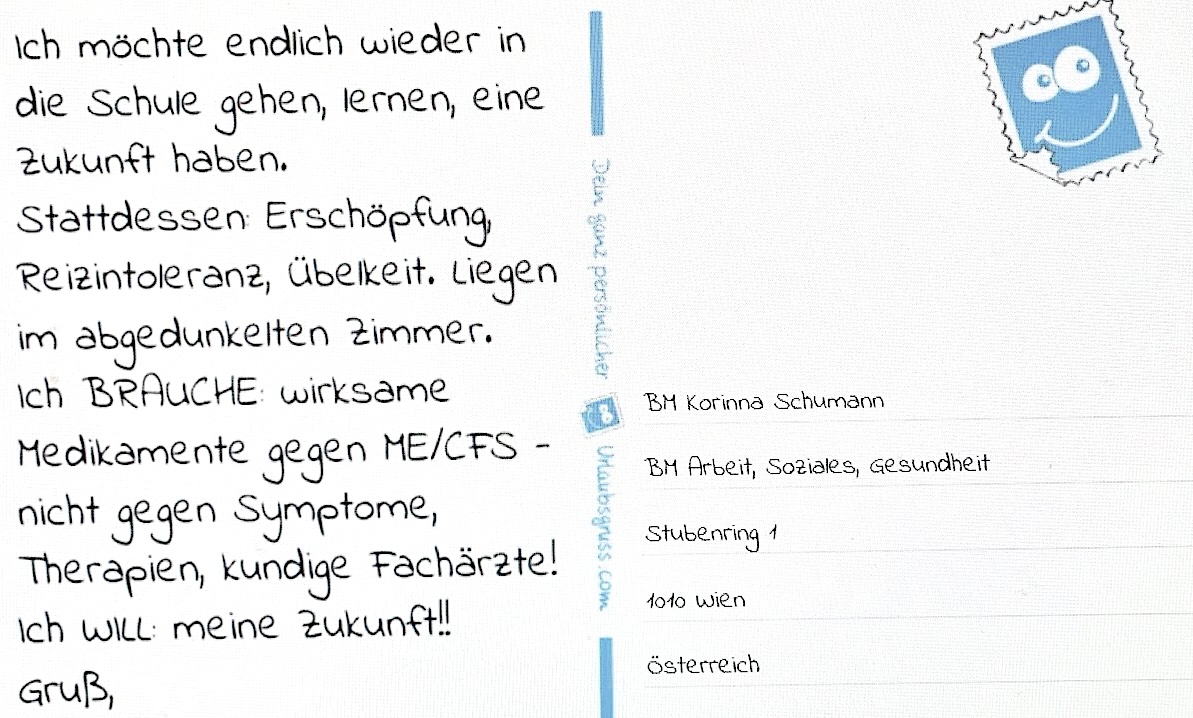 Ich möchte endlich wieder in
die Schule gehen, lernen, eine
Zukunft haben.
Stattdessen: Erschöpfung,
Reizintoleranz, Übelkeit. Liegen
im abgedunkelten Zimmer.
Ich BRAUCHE: wirksame
Medikamente gegen ME/CFS -
nicht gegen Symptome,
Therapien, kundige Fachärzte!
Ich WILL: meine Zukunft!!
Gruß,
Dein ganz persönlicher Urlaubsgruss.com
BM Korinna Schumann
BM Arbeit, Soziales, Gesundheit
Stubenring 1
1010 Wien
Österreich